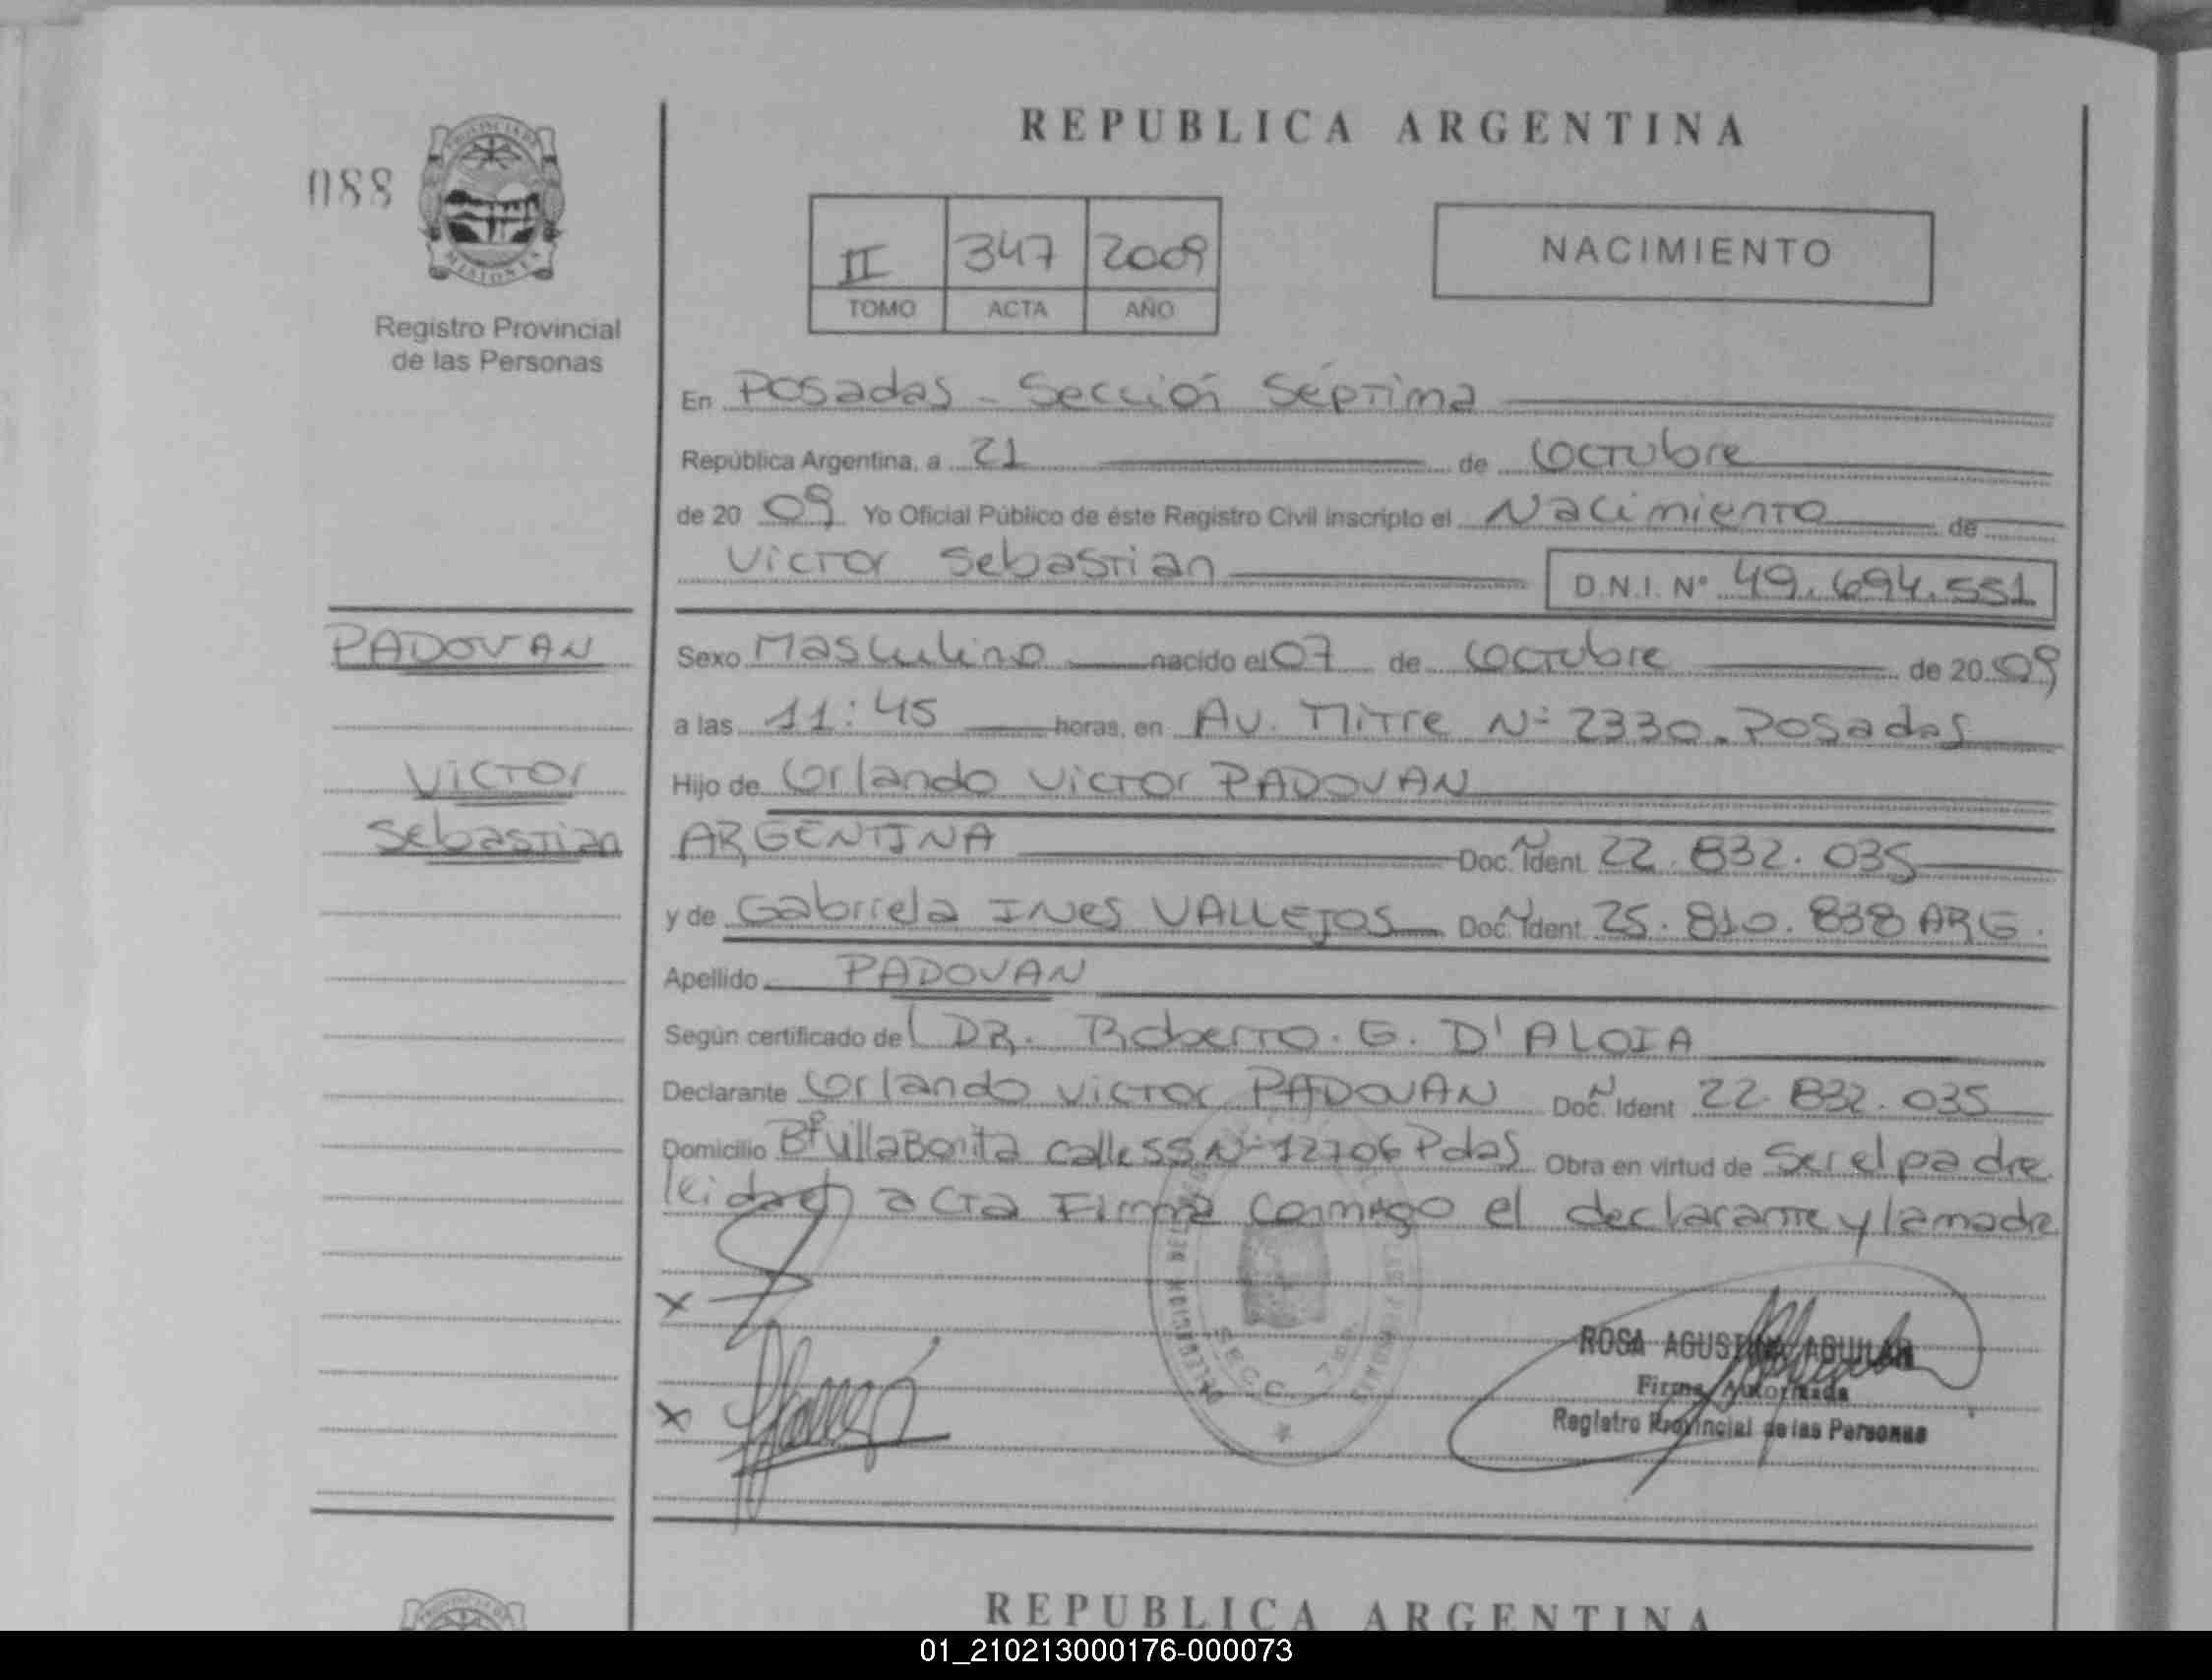 REPUBLICA ARGENTINA
088
PROVINCIA DE
MISIONES
Registro Provincial
de las Personas
II 347 2009
TOMO ACTA AÑO
NACIMIENTO
En Posadas - Sección Séptima
República Argentina, a 21 de Octubre
de 20 09 Yo Oficial Público de éste Registro Civil inscripto el Nacimiento de
Victor Sebastian D.N.I. Nº 49.694.551
PADOVAN
Victor
Sebastian
Sexo Masculino nacido el 07 de Octubre de 20 09
a las 11:45 horas, en Av. Mitre Nº 2330. Posadas
Hijo de Orlando Victor PADOVAN
ARGENTINA Doc. Ident. N 22.832.035
y de Gabriela INES VALLEJOS Doc. Ident N 25.810.838 ARG.
Apellido PADOVAN
Según certificado de l DR. Roberto. G. D'ALOIA
Declarante Orlando Victor PADOVAN Doc. Ident N 22.832.035
Domicilio Bº Villa Bonita calle 55 Nº 12706 Pdas Obra en virtud de Ser el padre
leida el acta Firma conmigo el declarante y la madre
x
x
SECC. 7
ROSA AGUSTINA AGUILAR
Firma Autorizada
Registro Provincial de las Personas
REPUBLICA ARGENTINA
01_210213000176-000073